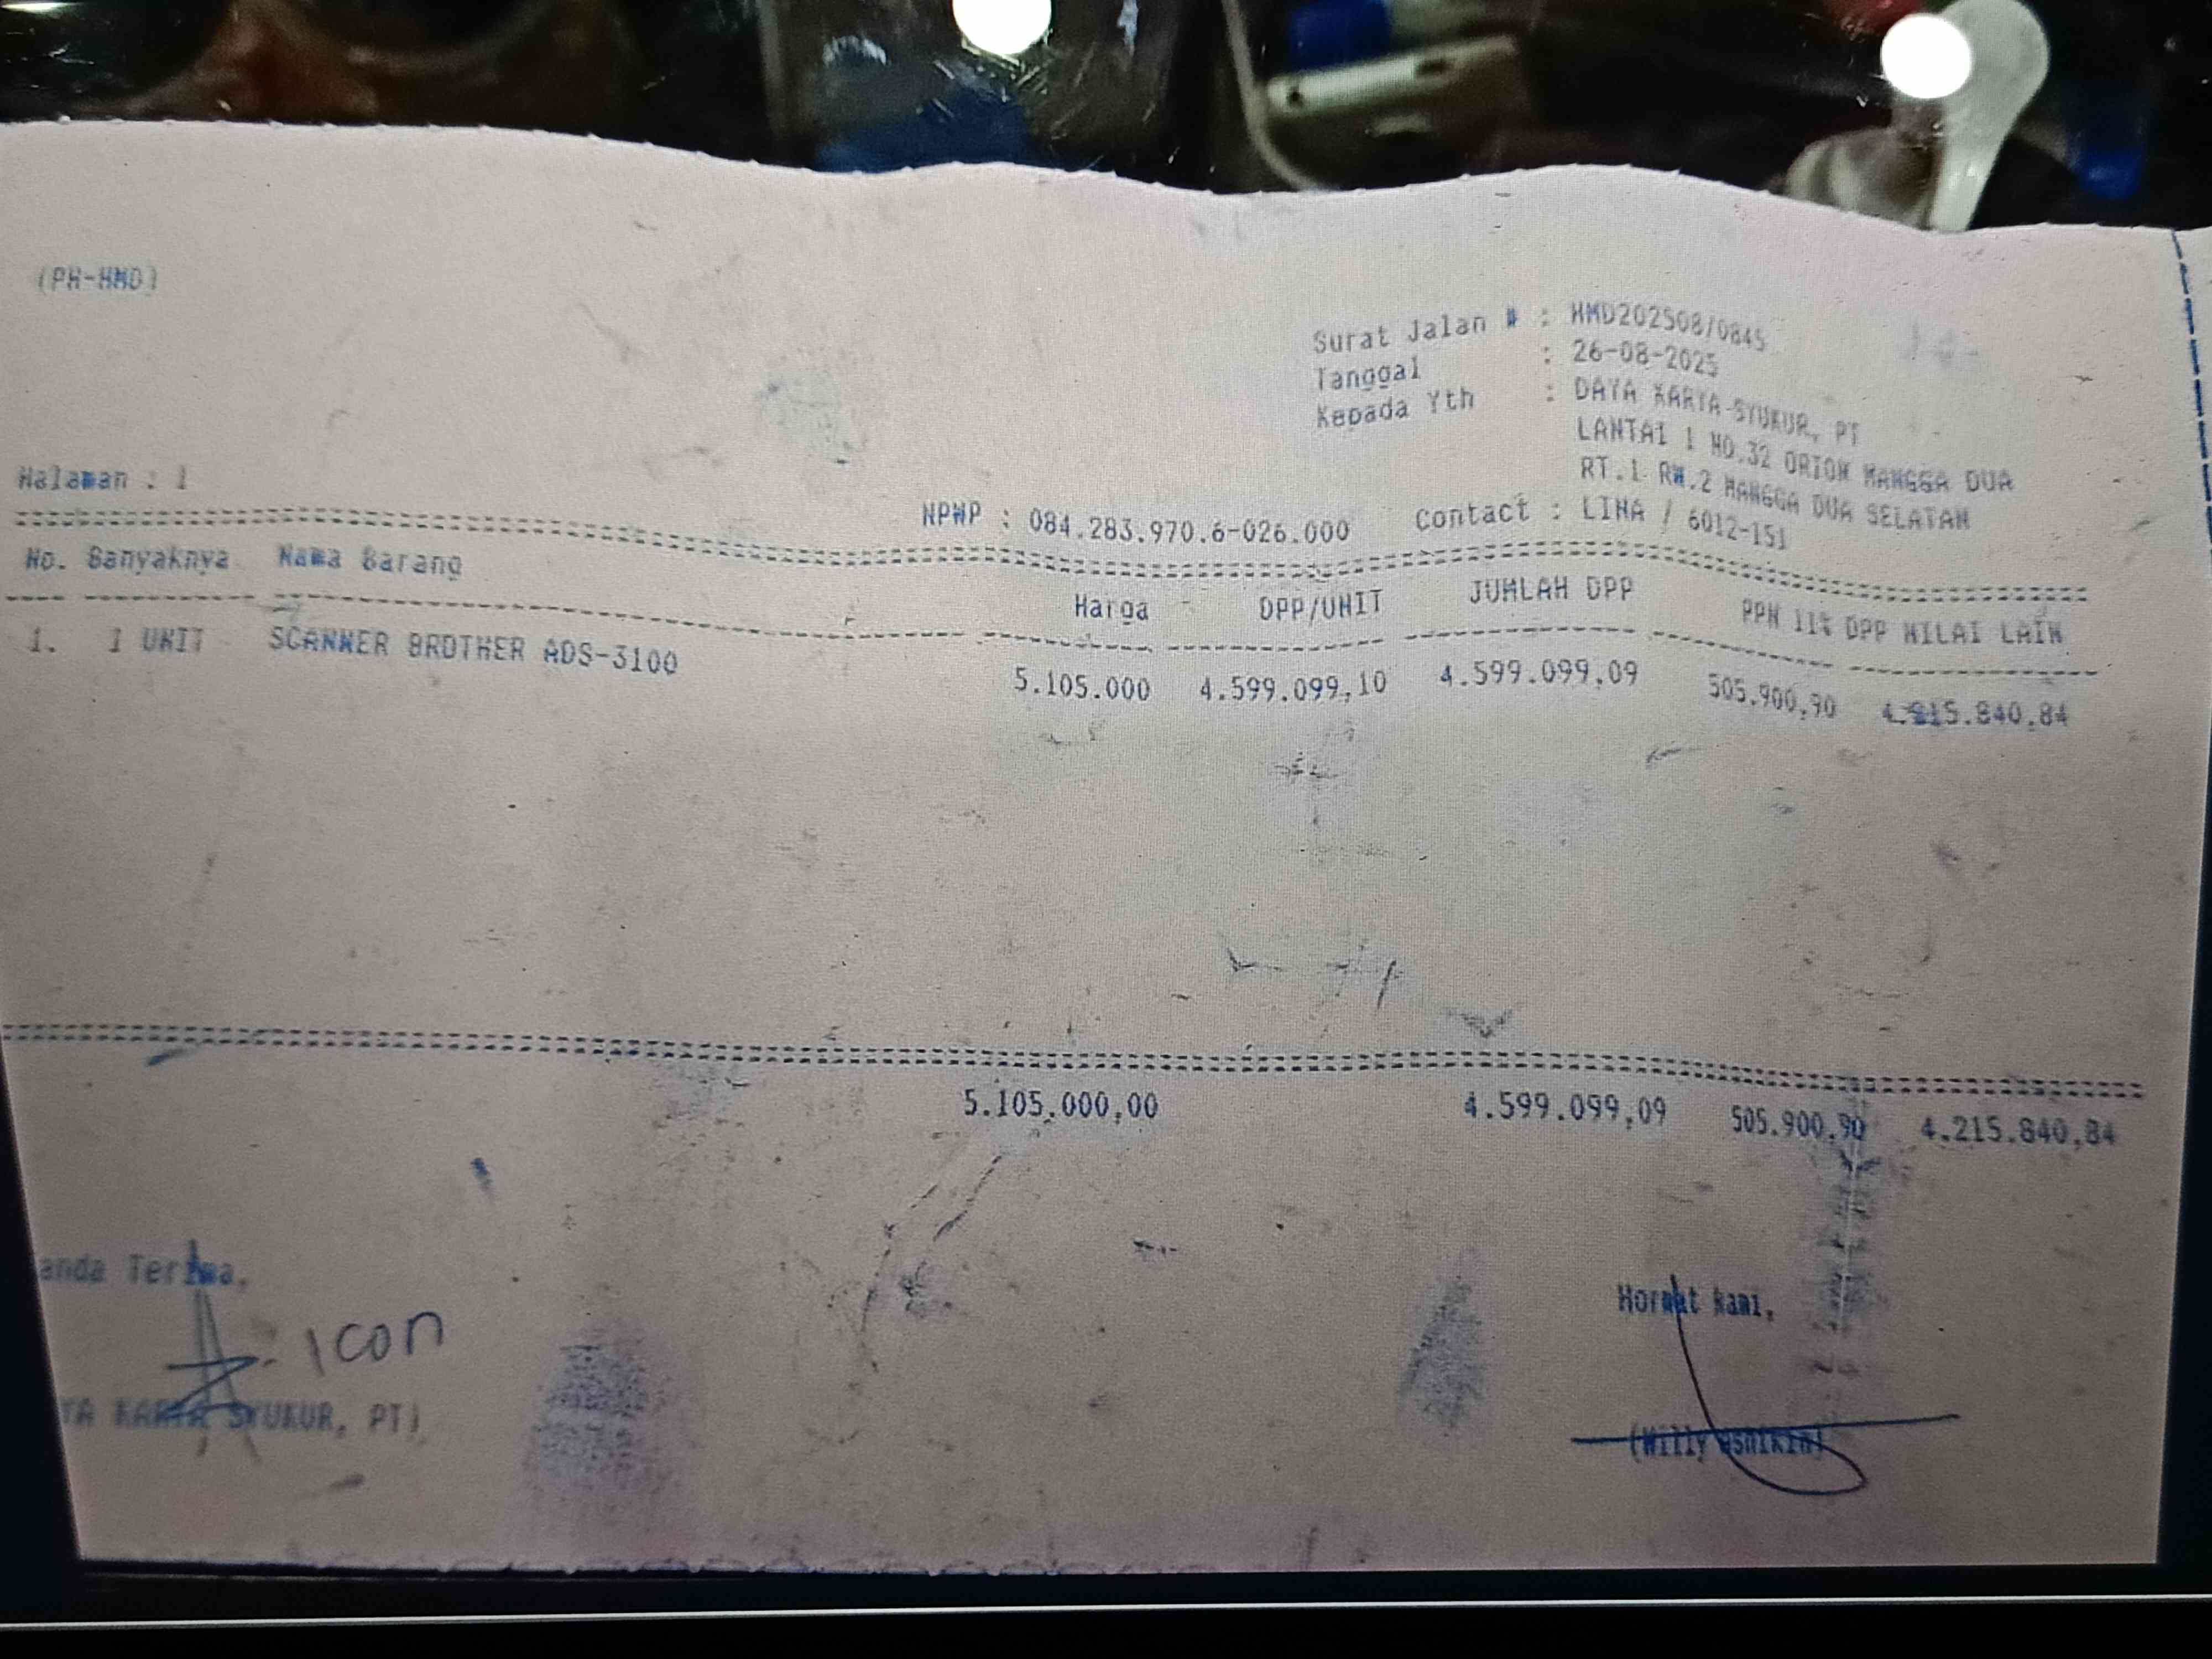 (PH-HMD)
Surat Jalan # : HMD202508/0845
Tanggal : 26-08-2025
Kepada Yth : DAYA KARYA SYUKUR, PT
LANTAI 1 NO.32 ORION MANGGA DUA
RT.1 RW.2 MANGGA DUA SELATAN
Halaman : 1
NPWP : 084.283.970.6-026.000 Contact : LINA / 6012-151
No. Banyaknya Nama Barang Harga DPP/UNIT JUMLAH DPP PPN 11% DPP NILAI LAIN
1. 1 UNIT SCANNER BROTHER ADS-3100 5.105.000 4.599.099,10 4.599.099,09 505.900,90 4.215.840,84
5.105.000,00 4.599.099,09 505.900,90 4.215.840,84
anda Terima,
Hormat kami,
icon
YA KARYA SYUKUR, PT)
(Willy